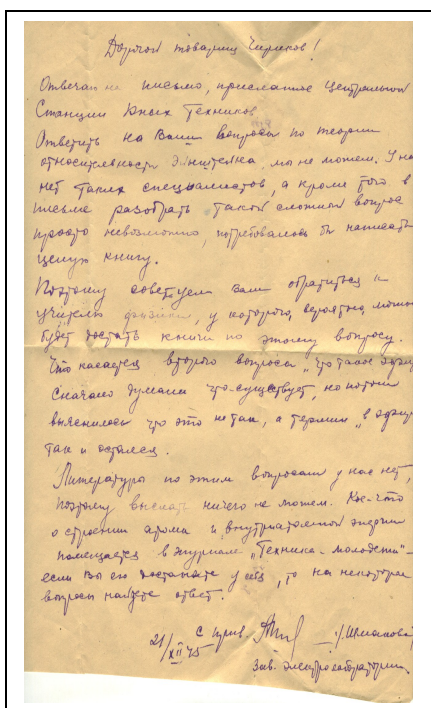 Дорогой товарищ Чириков!
Отвечаю на письмо, присланное Центральной
Станции Юных Техников
Ответить на Ваши вопросы по теории
относительности Энштейна, мы не можем. У на
нет таких специалистов, а кроме того в
письме разобрать такой сложный вопрос
просто невозможно, потребовалось бы написать
целую книгу.
Поэтому советуем вам обратиться к
учителю физики, у которого, вероятно, можно
будет достать книги по этому вопросу.
Что касается второго вопроса „что такое эфир
Сначала думали что существует, но потом
выяснилось что это не так, а термин „в эфир
так и остался.
Литературы по этим вопросам у нас нет,
поэтому выслать ничего не можем. Кое-что
о строении атома и внутриатомной энергии
помещается в журнале „Техника - молодежи" -
если Вы его достанете у себя, то на некоторые
вопросы найдете ответ.
21/XII 45 С прив.
Зав. электролабораторией